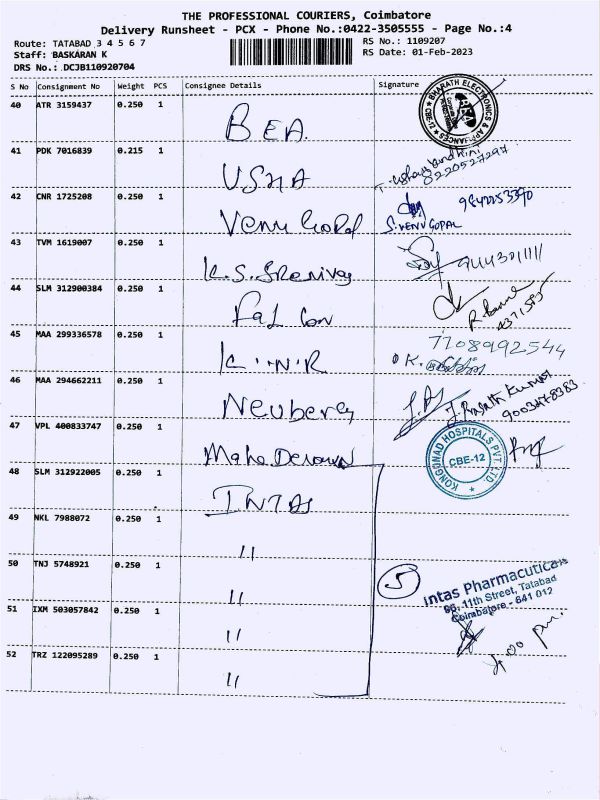 THE PROFESSIONAL COURIERS, Coimbatore
Delivery Runsheet - PCX - Phone No.:0422-3505555 - Page No.:4
Route: TATABAD 3 4 5 6 7
RS No.: 1109207
Staff: BASKARAN K
RS Date: 01-Feb-2023
DRS No.: DCJB110920704
S No Consignment No Weight PCS Consignee Details Signature
40 ATR 3159437 0.250 1
BEA
BHARATH ELECTRONICS & APPLIANCES
41 PDK 7016839 0.215 1
USHA
8220527297
42 CNR 1725208 0.250 1
Venu Gopal
S.VENUGOPAL
43 TVM 1619007 0.250 1
K.S. Srenivas
44 SLM 312900384 0.250 1
Fal Con
45 MAA 299336578 0.250 1
K.N.R
7708992544
46 MAA 294662211 0.250 1
Neuberg
J. Prasath Kumar
9003478383
47 VPL 400833747 0.250 1
KONGUNAD HOSPITALS PVT. LTD
CBE-12
48 SLM 312922005 0.250 1
INTAS
49 NKL 7988072 0.250 1
"
50 TNJ 5748921 0.250 1
"
5
Intas Pharmaceuticals
11th Street, Tatabad
Coimbatore - 641 012
51 IXM 503057842 0.250 1
"
52 TRZ 122095289 0.250 1
"